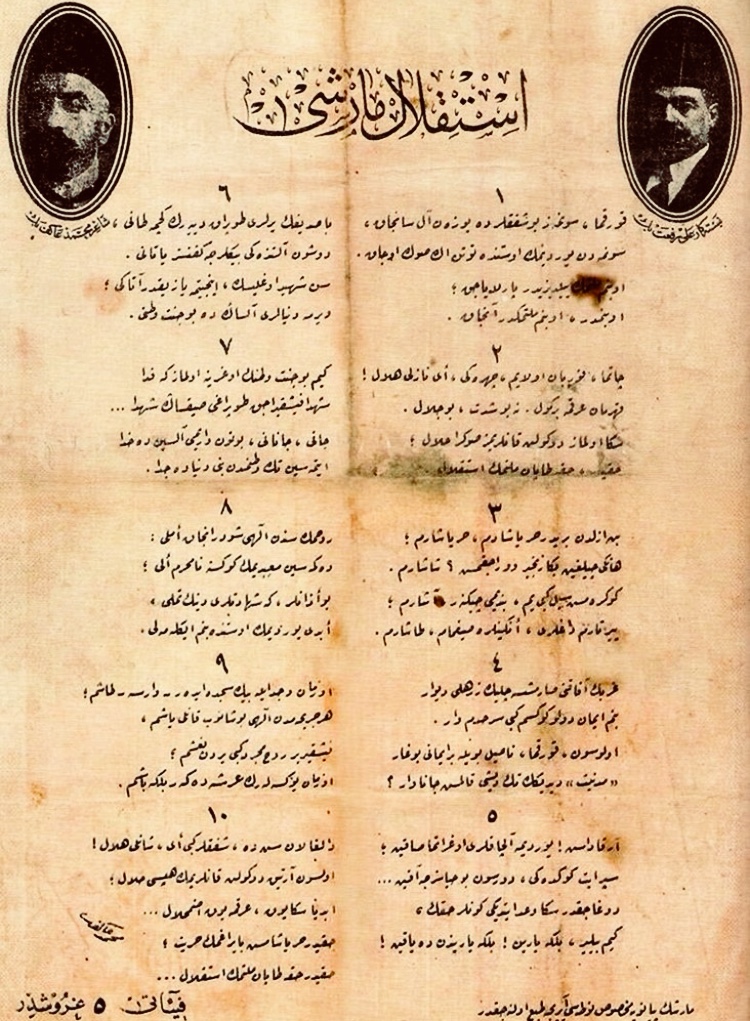 استقلال مارشی
بسته‌كار علی رفعت بك
شاعر محمد عاكف بك
١
قورقما، سونمز بو شفقلرده یوزن آل سانجاق،
سونمه‌دن یوردیمك اوستنده توتن اڭ صوڭ اوجاق.
او بنم ملتمك ییلدیزیدر پارلایاجق؛
او بنمدر، او بنم ملتمكدر آنجاق.
٢
چاتما، قوربان اولایم، چهره‌كی، ای نازلی هلال!
قهرمان عرقمه بر كول. نه بو شدت، بو جلال.
سكا اولماز دوكولن قانلریمز صوكرا حلال؛
حقیدر، حقه طاپان ملتمك استقلال.
٣
بن ازلدن بریدر حر یاشادم، حر یاشارم؛
هانكی چیلغین بكا زنجیر ووراجقمش؟ شاشارم.
كوكره‌مش سیل كبی یم، بندیمی چیكنر آشارم؛
ییرتارم داغلری، انكینلره صیغمام، طاشارم.
٤
غربك آفاقنی صارمشسه چلیك زرهلی دیوار
بنم ایمان دولو كوكسم كبی سرحدم وار.
اولوسون، قورقما، ناصیل بویله بر ایمانی بوغار
«مدنیت» دیدیكك تك دیشی قالمش جاناوار؟
٥
آرقاداش! یوردیمه آلچاقلری اوغراتما صاقین؛
سپر ایت كوكده‌كی، دورسون بو حیاسزجه آقین...
دوغاجقدر سكا وعد ایتدیكی كونلر حقك،
كیم بیلیر، بلكه یارین! بلكه یاریندن ده یاقین!
٦
باصدیغك یرلری طوپراق دییه‌رك كچمه طانی،
دوشون آلتنده‌كی بیكلرجه كفنسز یاتانی.
سن شهید اوغلیسك، اینجیتمه یازیقدر آتاكی؛
ویرمه دنیالری آلساڭ ده بو جنت وطنی.
٧
كیم بو جنت وطنك اوغرینه اولماز كه فدا
شهدا فیشقیراجق طوپراغی صیقساڭ شهدا...
جانی، جانانی، بوتون واریمی آلسین ده خدا
ایتمه‌سین تك وطنمدن بنی دنیاده جدا.
٨
روحمك سندن الهی شودر آنجاق املی:
دكمه‌سین معبدیمك كوكسنه نامحرم الی؛
بو اذانلر، كه شهادتلری دینك تملی،
ابدی یوردیمك اوستنده بنم ایكله‌ملی.
٩
او زمان وجد ایله بیك سجده ایدر ـ وارسه ـ طاشم؛
هر جریحه‌مدن الهی بوشانوب قانلی یاشم،
فیشقیریر روح مجرد كبی یردن نعشم؛
او زمان یوكسه‌له‌رك عرشه دكر بلكه باشم.
١٠
دالغالان سن ده، شفقلر كبی ای شانلی هلال!
اولسون آرتیق دوكولن قانلریمك هپسی حلال؛
ابدیا سكا یوق، عرقمه یوق اضمحلال...
حقیدر حر یاشامش بایراغمك حریت؛
حقیدر حقه طاپان ملتمك استقلال...
محمد عاكف
مارشك پیانویه مخصوص نوطه‌سی آیریجه طبع اولنه‌جقدر
فیئاتی ٥ غروشدر